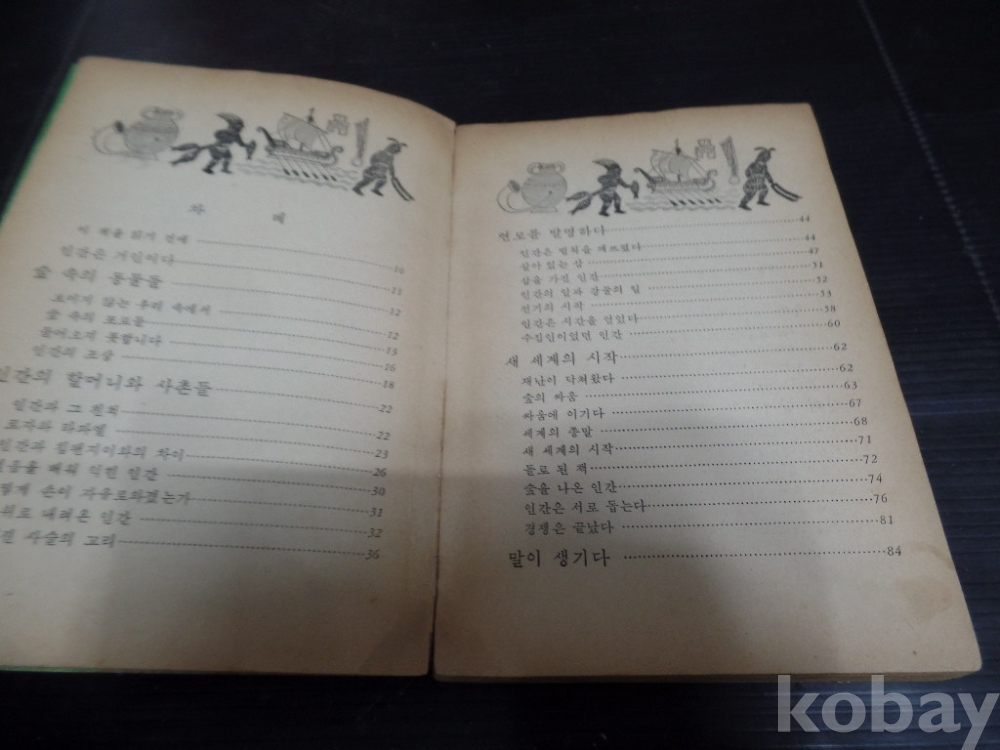 차 례
이 책을 읽기 전에
인간은 거인이다 10
숲 속의 동물들 11
보이지 않는 우리 속에서 12
숲 속의 포로들 12
돌아오지 못합니다 13
인간의 조상 16
인간의 할머니와 사촌들 18
22
인간과 그 친척 22
로자와 라파엘 23
인간과 침팬지이와의 차이 26
걸음을 배워 익힌 인간 30
손이 자유로와졌는가 31
내려온 인간 32
사슬의 고리 36
연모를 발명하다 44
인간은 법칙을 깨뜨렸다 44
살아 있는 삽 47
삽을 가진 인간 51
인간의 일과 강물의 일 52
전기의 시작 53
인간은 시간을 얻었다 58
수집인이었던 인간 60
새 세계의 시작 62
재난이 닥쳐왔다 62
숲의 싸움 63
싸움에 이기다 67
세계의 종말 68
새 세계의 시작 71
돌로 된 책 72
숲을 나온 인간 74
인간은 서로 돕는다 76
경쟁은 끝났다 81
말이 생기다 84
kobay